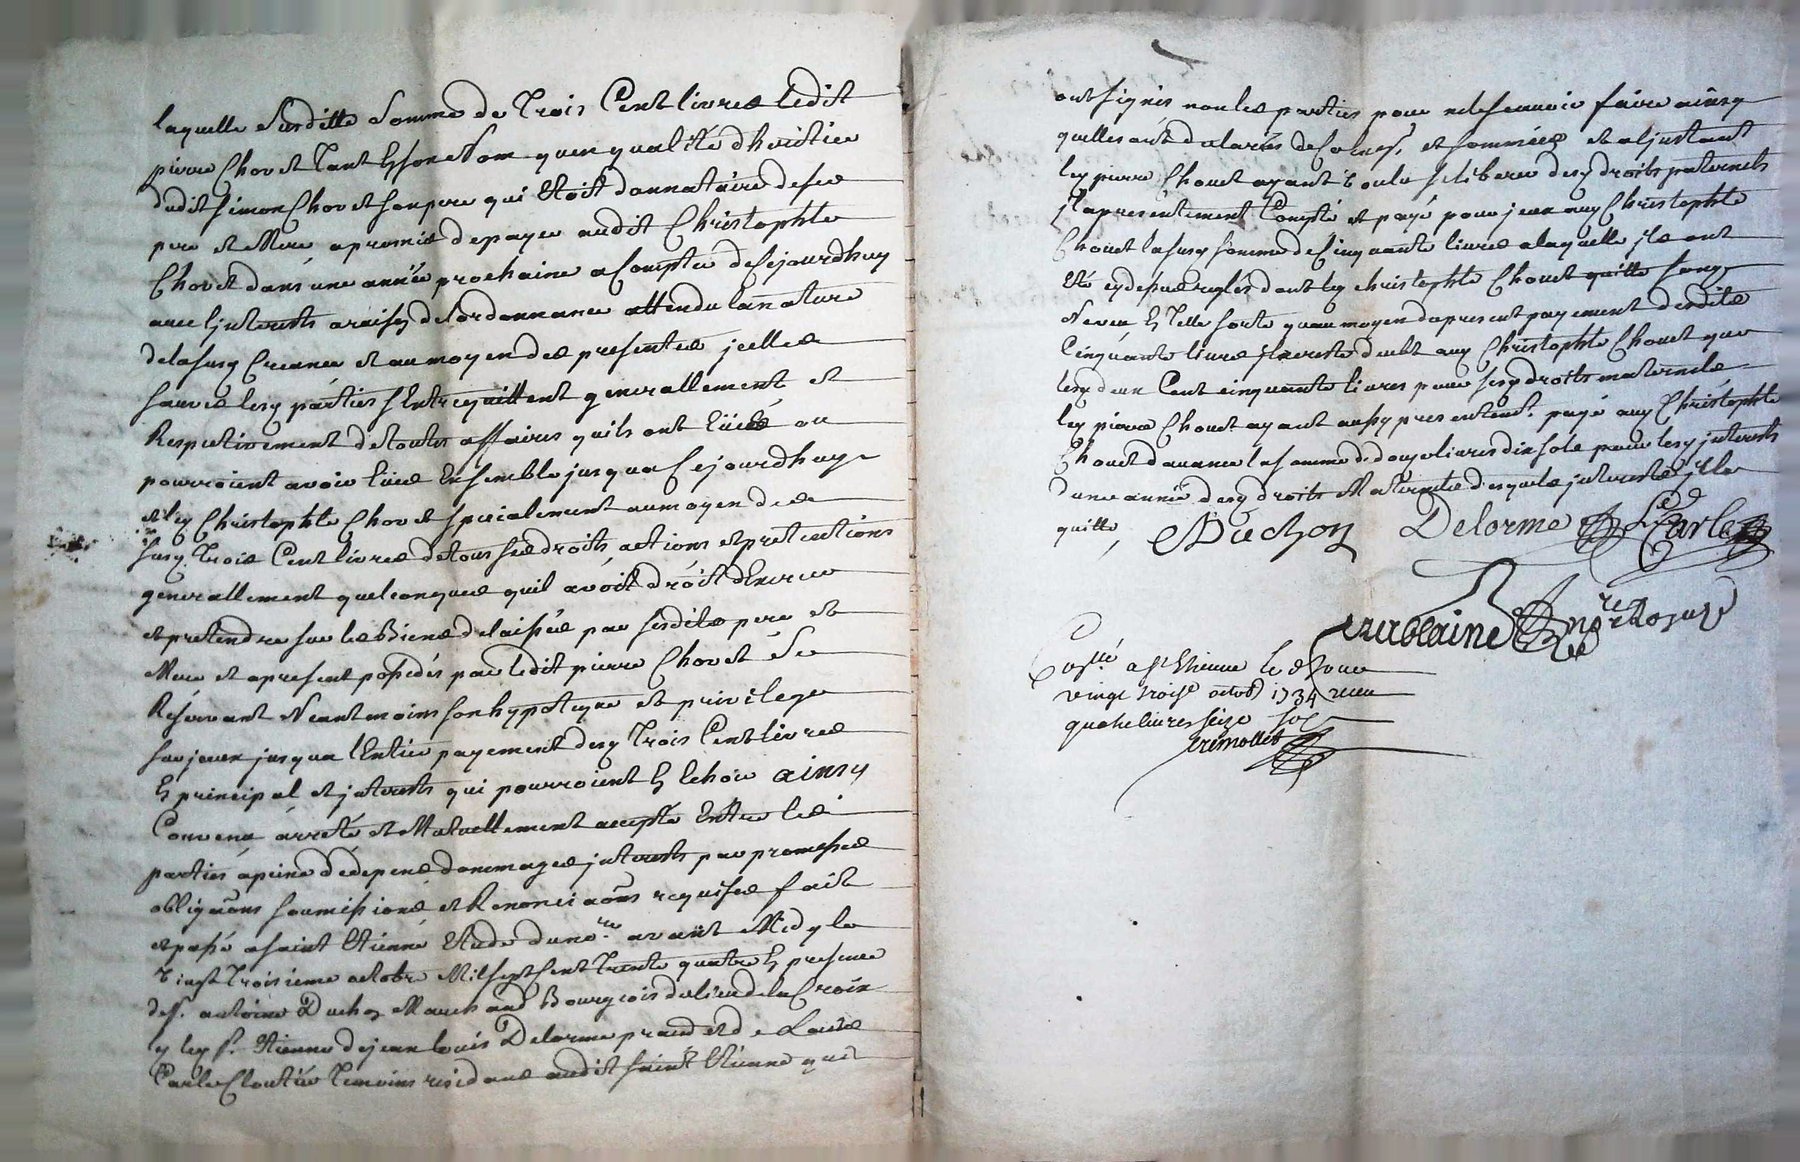 laquelle Susditte Somme de Trois Cent livres ledit
pierre Chovet Tant En son Nom quen qualité dheritier
dudit Simon Chovet son pere qui Etoit donnataire desd
pere et Mere a promis de payer audit Christophle
Chovet dans une année prochaine a Compter de Cejourdhuy
avec Interests a raison de lordonnance attendu la nature
de la susd Creance et au moyen des presentes jcelles
sauves lesd parties sEntrequittent generallement et
Respectivement de toutes affaires quils ont Eües ou
pourroient avoir Eües Ensemble jusqua Cejourdhuy
et led Christophle Chovet specialement au moyen des
susd Trois Cent livres de tous ses droits actions et pretentions
generallement quelconques quil avoit droit dExercer
et pretendre sur les Biens delaissés par sesdits pere et
Mere et a present possedés par ledit pierre Chovet Se
Reservant Neantmoins son hypoteque et privilege
sur jceux jusqua lEntier payement desd Trois Cent livres
En principal et jnterests qui pourroient En Echoir ainsy
Convenu arreté et Mutuellement accepté Entre les
parties a peine de depens dommages jnterests par promesses
obligaons soumissions et Renonciaons requises fait
et passé a saint Etienne Etude du nore avant Midy le
vingt Troisieme octobre Mil sept Cent Trente quatre En presence
de sr. antoine Duchon Marchand Bourgeois du lieu de la Croix
led sr. Etienne de jean louis Delorme praud et de Louis
Carle Cloutier Temoins residans audit saint Etienne qui
ont signés non les parties pour ne le scavoir faire ainsy
quelles ont declarés de Ce enquis, et sommées et a ljnstant
led pierre Chovet ayant voulu se liberer desd droits paternels
Il a presentement Compté et payé pour jceux aud Christophle
Chovet la susd somme de Cinquante livres a laquelle jls ont
Eté cy dessus reglés dont led christophle Chovet quitte sond
Neveu En Telle sorte quau moyen du present payement desdits
Cinquante livres jl ne reste deubt aud Christophle Chovet que
lesd deux Cent cinquante livres pour sesd droits maternels
led pierre Chovet ayant aussy presentement. payé aud Christophle
Chovet davance la somme de douze livres dix sols pour lesd jnterests
dune année desd droits Maternels desquels jnterests jl le
quitte, Duchon Delorme Ls Carle
nore Royal
Collé a St Etienne le d jour
vingt trois octob 1734 receu
quatre livres seize sols
cremollet